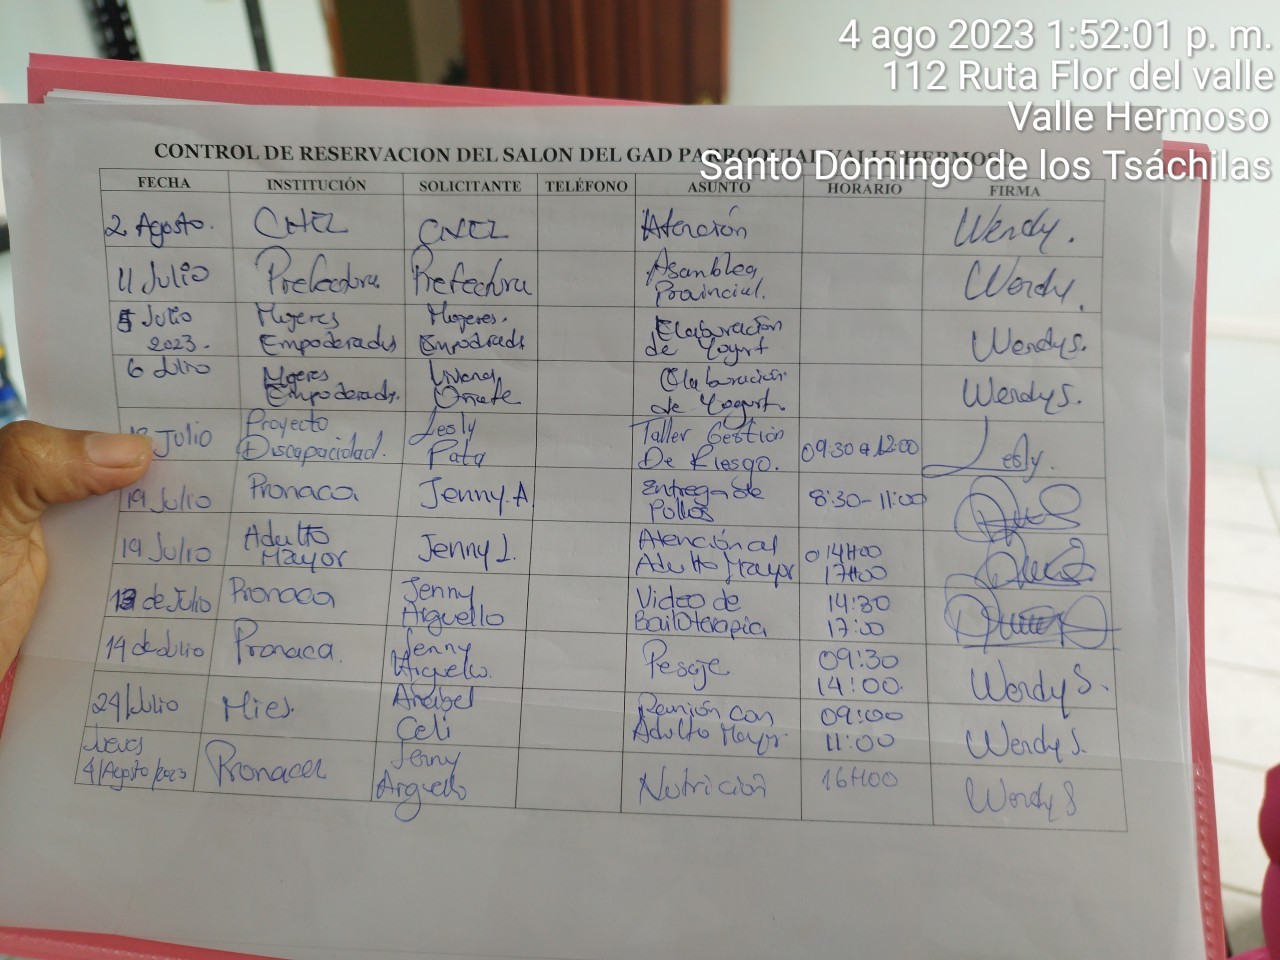 4 ago 2023 1:52:01 p. m.
112 Ruta Flor del valle
Valle Hermoso
Santo Domingo de los Tsáchilas
CONTROL DE RESERVACION DEL SALON DEL GAD PARROQUIAL VALLE HERMOSO
FECHA INSTITUCIÓN SOLICITANTE TELÉFONO ASUNTO HORARIO FIRMA
2 Agosto. CNEL CNEL Atención Wendy.
11 Julio Prefectura Prefectura Asamblea Provincial. Wendy.
5 Julio 2023. Mujeres Empoderadas Mujeres. Empodrads Elaboración de Yogurt Wendy S.
6 Julio Mujeres Empoderads. Oñate Elaboración de Yogurt. Wendy S.
Julio Proyecto Discapacidad. Lesly Pata Taller Gestión De Riesgo. 09:30 a 12:00 Lesly.
19 Julio Pronaca Jenny.A Entrega de Pollos 8:30-11:00
19 Julio Adulto Mayor Jenny L. Atención al Adulto Mayor 14H00 17H00
13 de Julio Pronaca Jenny Arguello Video de Bailoterapia 14:30 17:00
14 de Julio Pronaca. Jenny Arguello. Pesaje 09:30 14:00. Wendy S.
24/Julio Mies. Anabel Celi Reunión con Adulto Mayor. 09:00 11:00 Wendy S.
4/Agosto/2023 Pronaca Jenny Arguello Nutrición 16H00 Wendy S